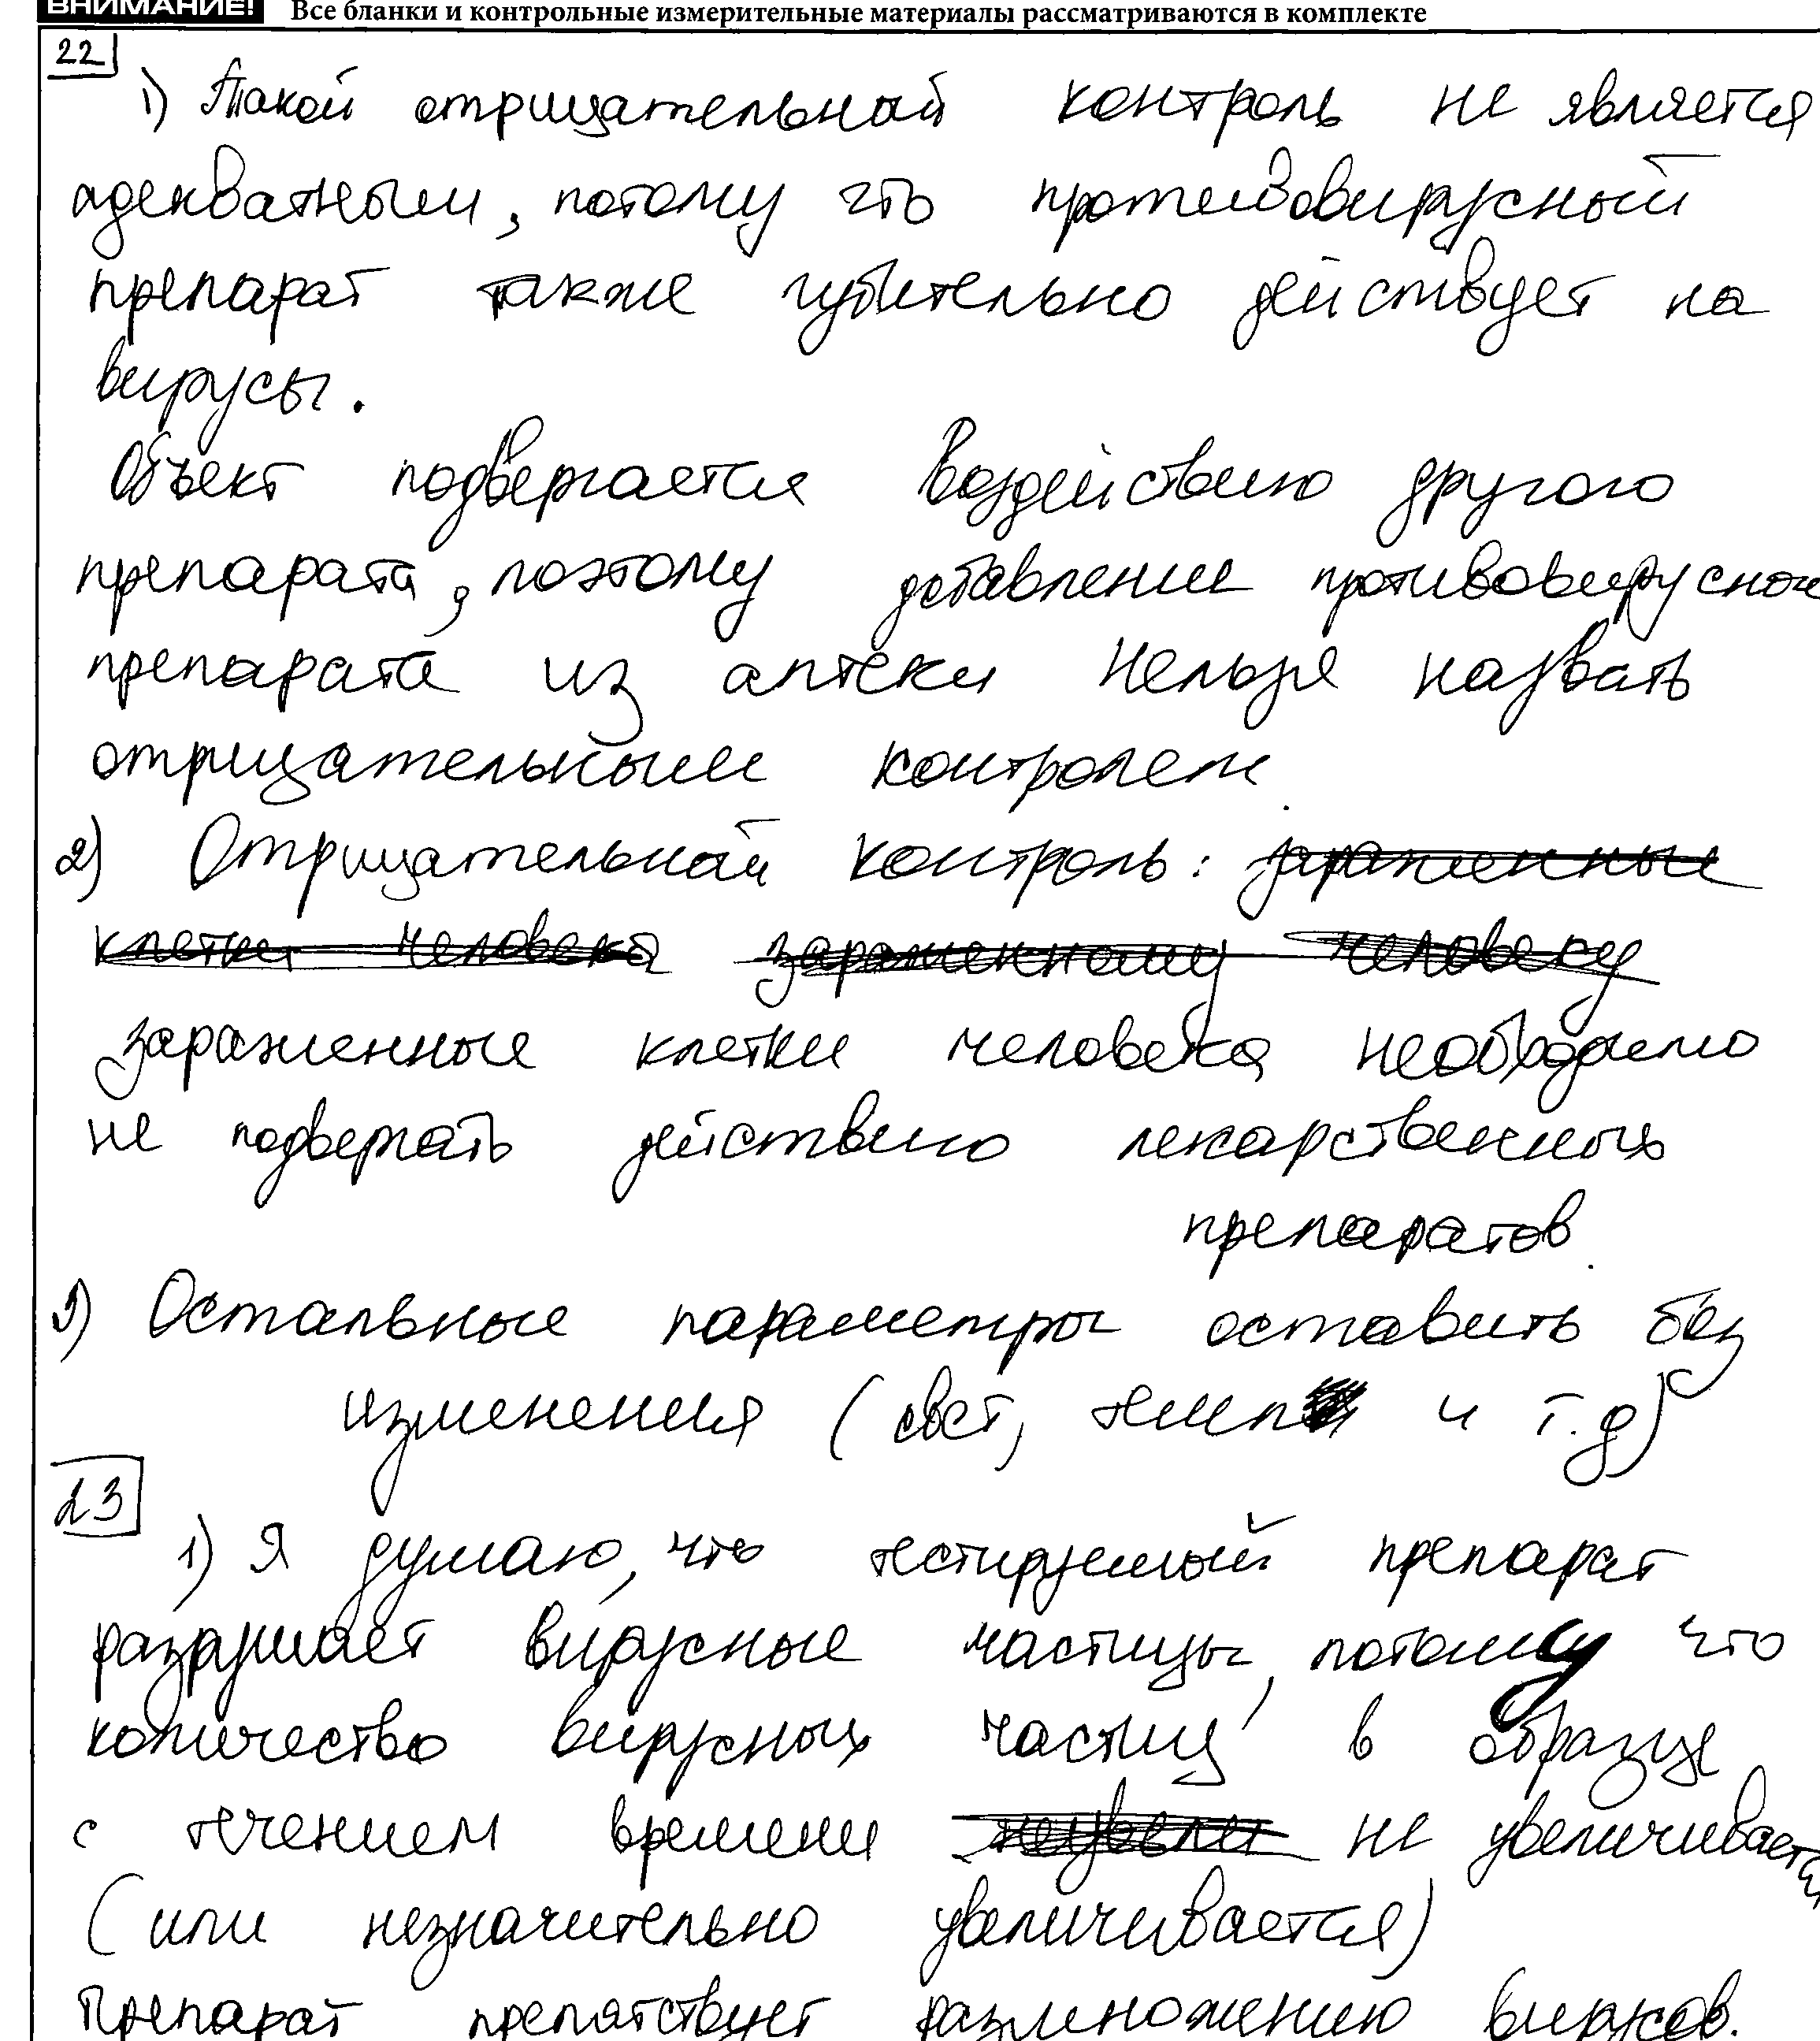 ВНИМАНИЕ! Все бланки и контрольные измерительные материалы рассматриваются в комплекте
22
1) Такой отрицательный контроль не является
адекватным, потому что противовирусный
препарат также губительно действует на
вирусы.
Объект подвергается воздействию другого
препарата, поэтому добавление противовирусного
препарата из аптеки нельзя назвать
отрицательным контролем.
2) Отрицательный контроль: зараженные
клетки человека зараженному человеку
зараженные клетки человека необходимо
не подвергать действию лекарственных
препаратов.
3) Остальные параметры оставить без
изменения (свет, темп и т.д)
23
1) Я думаю, что тестируемый препарат
разрушает вирусные частицы, потому что
количество вирусных частиц в образце
с течением времени не увеличивается
(или незначительно увеличивается)
Препарат препятствует размножению вирусов.